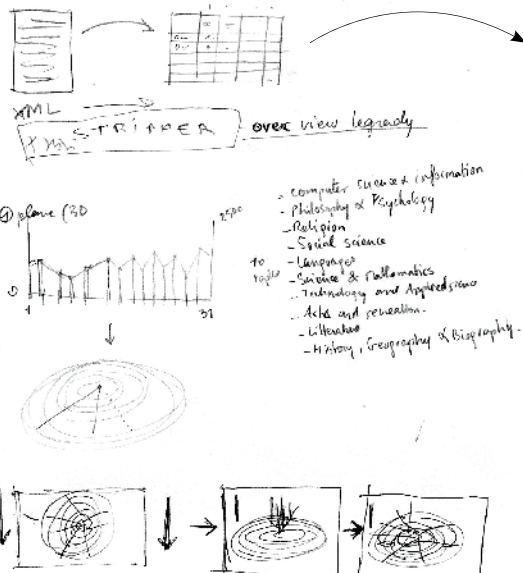 XML
XML STRIPPER
over view legendy
① plane (3D
2500
1
31
10
- computer science & information
- Philosophy & Psychology
- Religion
- Social science
- Languages
- Science & Mathematics
- Technology and Applied science
- Arts and recreation.
- Litterature
- History, Geography & Biography.